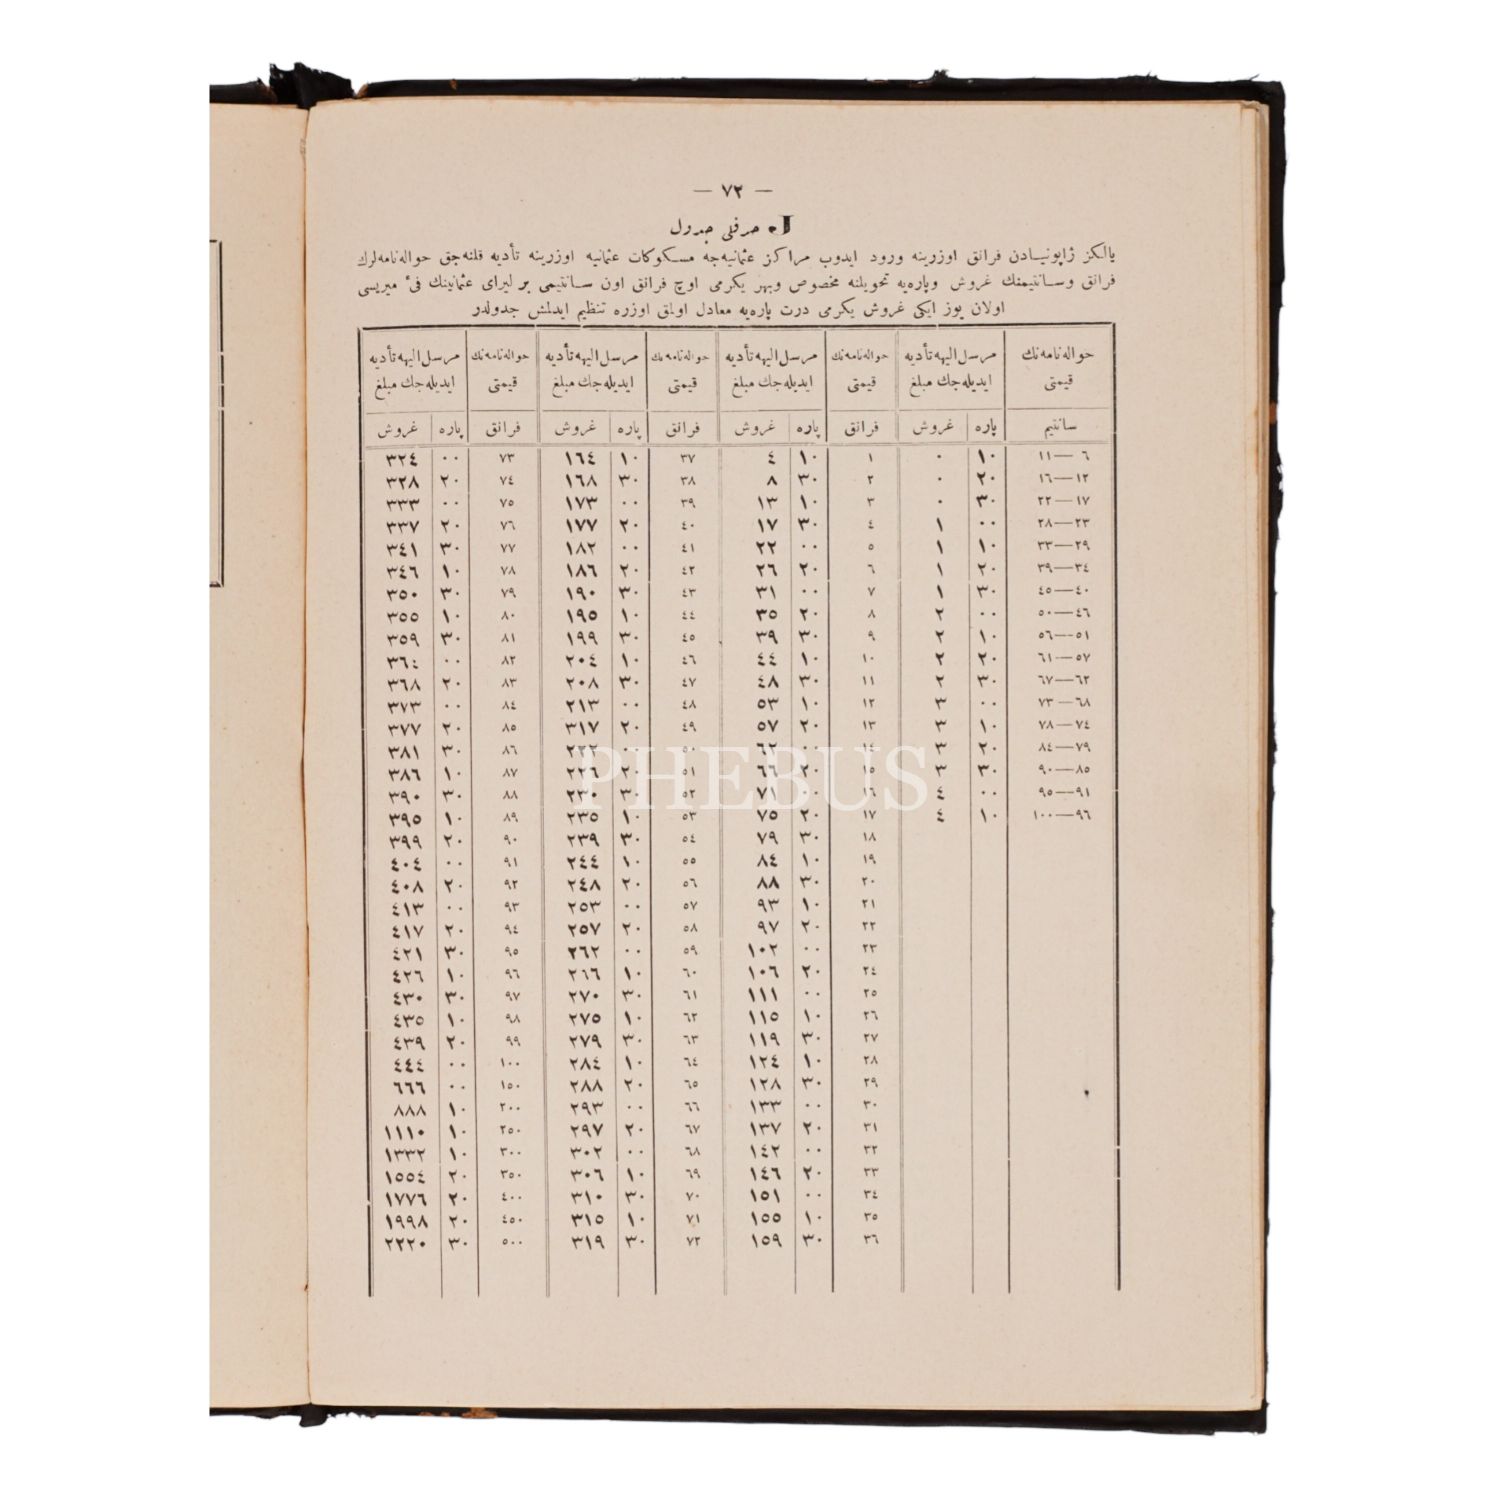 — ٧٢ —
J. حرفلی جدول
يالكز ژاپونيادن فرانق اوزرينه ورود ايدوب مراكز عثمانيه‌جه مسكوكات عثمانيه اوزرينه تأديه قلنه‌جق حواله‌نامه‌لرك
فرانق وسانتيمنك غروش وپاره‌يه تحويلنه مخصوص وبهر يكرمى اوچ فرانق اون سانتيمى بر ليراى عثمانينك فئ ميريسى
اولان يوز ايكى غروش يكرمى درت پاره‌يه معادل اولمق اوزره تنظيم ايدلمش جدولدر
حواله‌نامه‌نك مرسل‌اليهه تأديه حواله‌نامه‌نك مرسل‌اليهه تأديه حواله‌نامه‌نك مرسل‌اليهه تأديه حواله‌نامه‌نك مرسل‌اليهه تأديه
قيمتى ايديله‌جك مبلغ قيمتى ايديله‌جك مبلغ قيمتى ايديله‌جك مبلغ قيمتى ايديله‌جك مبلغ
سانتيم پاره غروش فرانق پاره غروش فرانق پاره غروش فرانق پاره غروش
٦—١١ ١٠ ٠ ١ ١٠ ٤ ٣٧ ١٠ ١٦٤ ٧٣ ٠٠ ٣٢٤
١٢—١٦ ٢٠ ٠ ٢ ٣٠ ٨ ٣٨ ٣٠ ١٦٨ ٧٤ ٢٠ ٣٢٨
١٧—٢٢ ٣٠ ٠ ٣ ١٠ ١٣ ٣٩ ٠٠ ١٧٣ ٧٥ ٠٠ ٣٣٣
٢٣—٢٨ ٠٠ ١ ٤ ٣٠ ١٧ ٤٠ ٢٠ ١٧٧ ٧٦ ٢٠ ٣٣٧
٢٩—٣٣ ١٠ ١ ٥ ٠٠ ٢٢ ٤١ ٠٠ ١٨٢ ٧٧ ٣٠ ٣٤١
٣٤—٣٩ ٢٠ ١ ٦ ٢٠ ٢٦ ٤٢ ٢٠ ١٨٦ ٧٨ ١٠ ٣٤٦
٤٠—٤٥ ٣٠ ١ ٧ ٠٠ ٣١ ٤٣ ٣٠ ١٩٠ ٧٩ ٣٠ ٣٥٠
٤٦—٥٠ ٠٠ ٢ ٨ ٢٠ ٣٥ ٤٤ ١٠ ١٩٥ ٨٠ ١٠ ٣٥٥
٥١—٥٦ ١٠ ٢ ٩ ٣٠ ٣٩ ٤٥ ٣٠ ١٩٩ ٨١ ٣٠ ٣٥٩
٥٧—٦١ ٢٠ ٢ ١٠ ١٠ ٤٤ ٤٦ ١٠ ٢٠٤ ٨٢ ٠٠ ٣٦٤
٦٢—٦٧ ٣٠ ٢ ١١ ٣٠ ٤٨ ٤٧ ٣٠ ٢٠٨ ٨٣ ٢٠ ٣٦٨
٦٨—٧٣ ٠٠ ٣ ١٢ ١٠ ٥٣ ٤٨ ٠٠ ٢١٣ ٨٤ ٠٠ ٣٧٣
٧٤—٧٨ ١٠ ٣ ١٣ ٢٠ ٥٧ ٤٩ ٢٠ ٣١٧ ٨٥ ٢٠ ٣٧٧
٧٩—٨٤ ٢٠ ٣ ١٤ ٠٠ ٦٢ ٥٠ ٠٠ ٢٢٢ ٨٦ ٣٠ ٣٨١
٨٥—٩٠ ٣٠ ٣ ١٥ ٢٠ ٦٦ ٥١ ٢٠ ٢٢٦ ٨٧ ١٠ ٣٨٦
٩١—٩٥ ٠٠ ٤ ١٦ ٠٠ ٧١ ٥٢ ٣٠ ٢٣٠ ٨٨ ٣٠ ٣٩٠
٩٦—١٠٠ ١٠ ٤ ١٧ ٢٠ ٧٥ ٥٣ ١٠ ٢٣٥ ٨٩ ١٠ ٣٩٥
١٨ ٣٠ ٧٩ ٥٤ ٣٠ ٢٣٩ ٩٠ ٢٠ ٣٩٩
١٩ ١٠ ٨٤ ٥٥ ١٠ ٢٤٤ ٩١ ٠٠ ٤٠٤
٢٠ ٣٠ ٨٨ ٥٦ ٢٠ ٢٤٨ ٩٢ ٢٠ ٤٠٨
٢١ ١٠ ٩٣ ٥٧ ٠٠ ٢٥٣ ٩٣ ٠٠ ٤١٣
٢٢ ٢٠ ٩٧ ٥٨ ٢٠ ٢٥٧ ٩٤ ٢٠ ٤١٧
٢٣ ٠٠ ١٠٢ ٥٩ ٠٠ ٢٦٢ ٩٥ ٣٠ ٤٢١
٢٤ ٢٠ ١٠٦ ٦٠ ١٠ ٢٦٦ ٩٦ ١٠ ٤٢٦
٢٥ ٠٠ ١١١ ٦١ ٣٠ ٢٧٠ ٩٧ ٣٠ ٤٣٠
٢٦ ١٠ ١١٥ ٦٢ ١٠ ٢٧٥ ٩٨ ١٠ ٤٣٥
٢٧ ٣٠ ١١٩ ٦٣ ٣٠ ٢٧٩ ٩٩ ٢٠ ٤٣٩
٢٨ ١٠ ١٢٤ ٦٤ ١٠ ٢٨٤ ١٠٠ ٠٠ ٤٤٤
٢٩ ٣٠ ١٢٨ ٦٥ ٢٠ ٢٨٨ ١٥٠ ٠٠ ٦٦٦
٣٠ ٠٠ ١٣٣ ٦٦ ٠٠ ٢٩٣ ٢٠٠ ١٠ ٨٨٨
٣١ ٢٠ ١٣٧ ٦٧ ٢٠ ٢٩٧ ٢٥٠ ١٠ ١١١٠
٣٢ ٠٠ ١٤٢ ٦٨ ٠٠ ٣٠٢ ٣٠٠ ١٠ ١٣٣٢
٣٣ ٢٠ ١٤٦ ٦٩ ١٠ ٣٠٦ ٣٥٠ ٢٠ ١٥٥٤
٣٤ ٠٠ ١٥١ ٧٠ ٣٠ ٣١٠ ٤٠٠ ٢٠ ١٧٧٦
٣٥ ١٠ ١٥٥ ٧١ ١٠ ٣١٥ ٤٥٠ ٢٠ ١٩٩٨
٣٦ ٣٠ ١٥٩ ٧٢ ٣٠ ٣١٩ ٥٠٠ ٣٠ ٢٢٢٠
PHEBUS